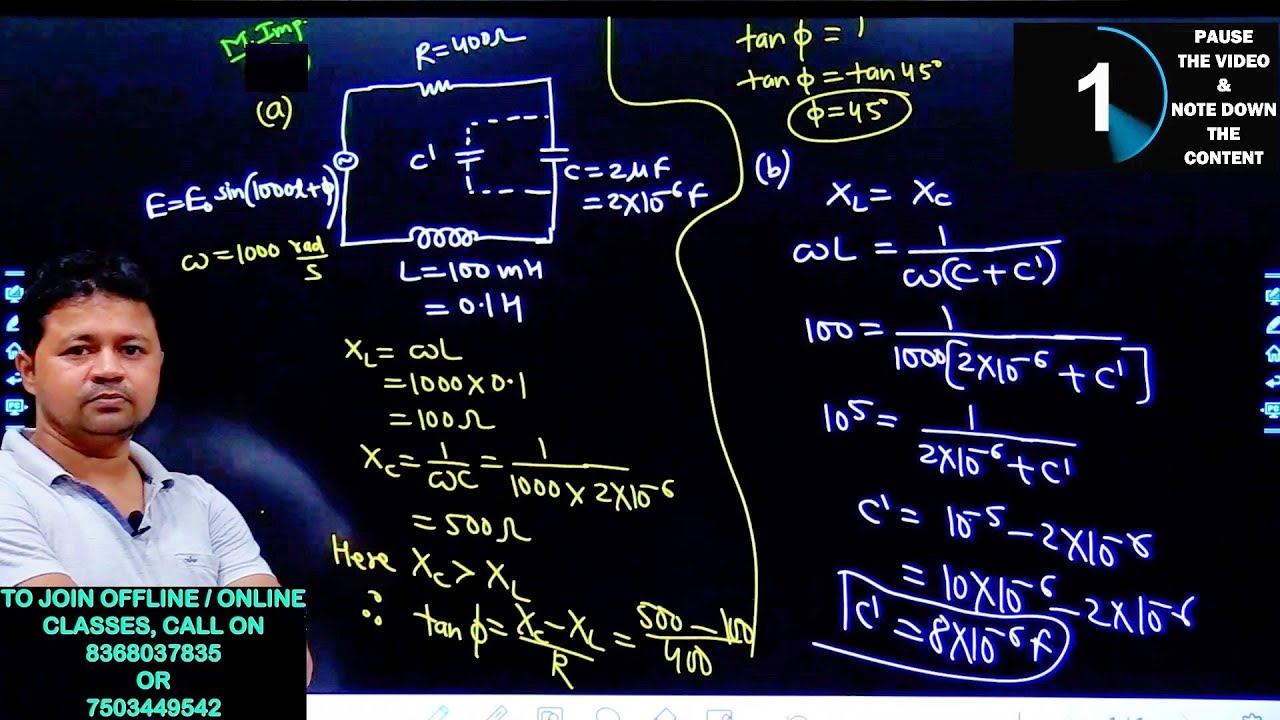 M. Imp.
(a)
R=400Ω
C'
C=2μF
=2×10⁻⁶F
E=E₀ sin(1000t+ϕ)
ω=1000 rad/s
L=100mH
=0.1H
X_L= ωL
=1000×0.1
=100Ω
X_C= 1/ωC = 1/1000×2×10⁻⁶
=500Ω
Here X_C>X_L
∴ tanϕ= X_C-X_L/R = 500-100/400
tanϕ= 1
tanϕ=tan45°
ϕ=45°
(b)
X_L= X_C
ωL = 1/ω(C+C')
100= 1/1000[2×10⁻⁶+C']
10⁵= 1/2×10⁻⁶+C'
C'= 10⁻⁵-2×10⁻⁶
=10×10⁻⁶-2×10⁻⁶
C'=8×10⁻⁶F
1
PAUSE
THE VIDEO
&
NOTE DOWN
THE
CONTENT
TO JOIN OFFLINE / ONLINE
CLASSES, CALL ON
8368037835
OR
7503449542